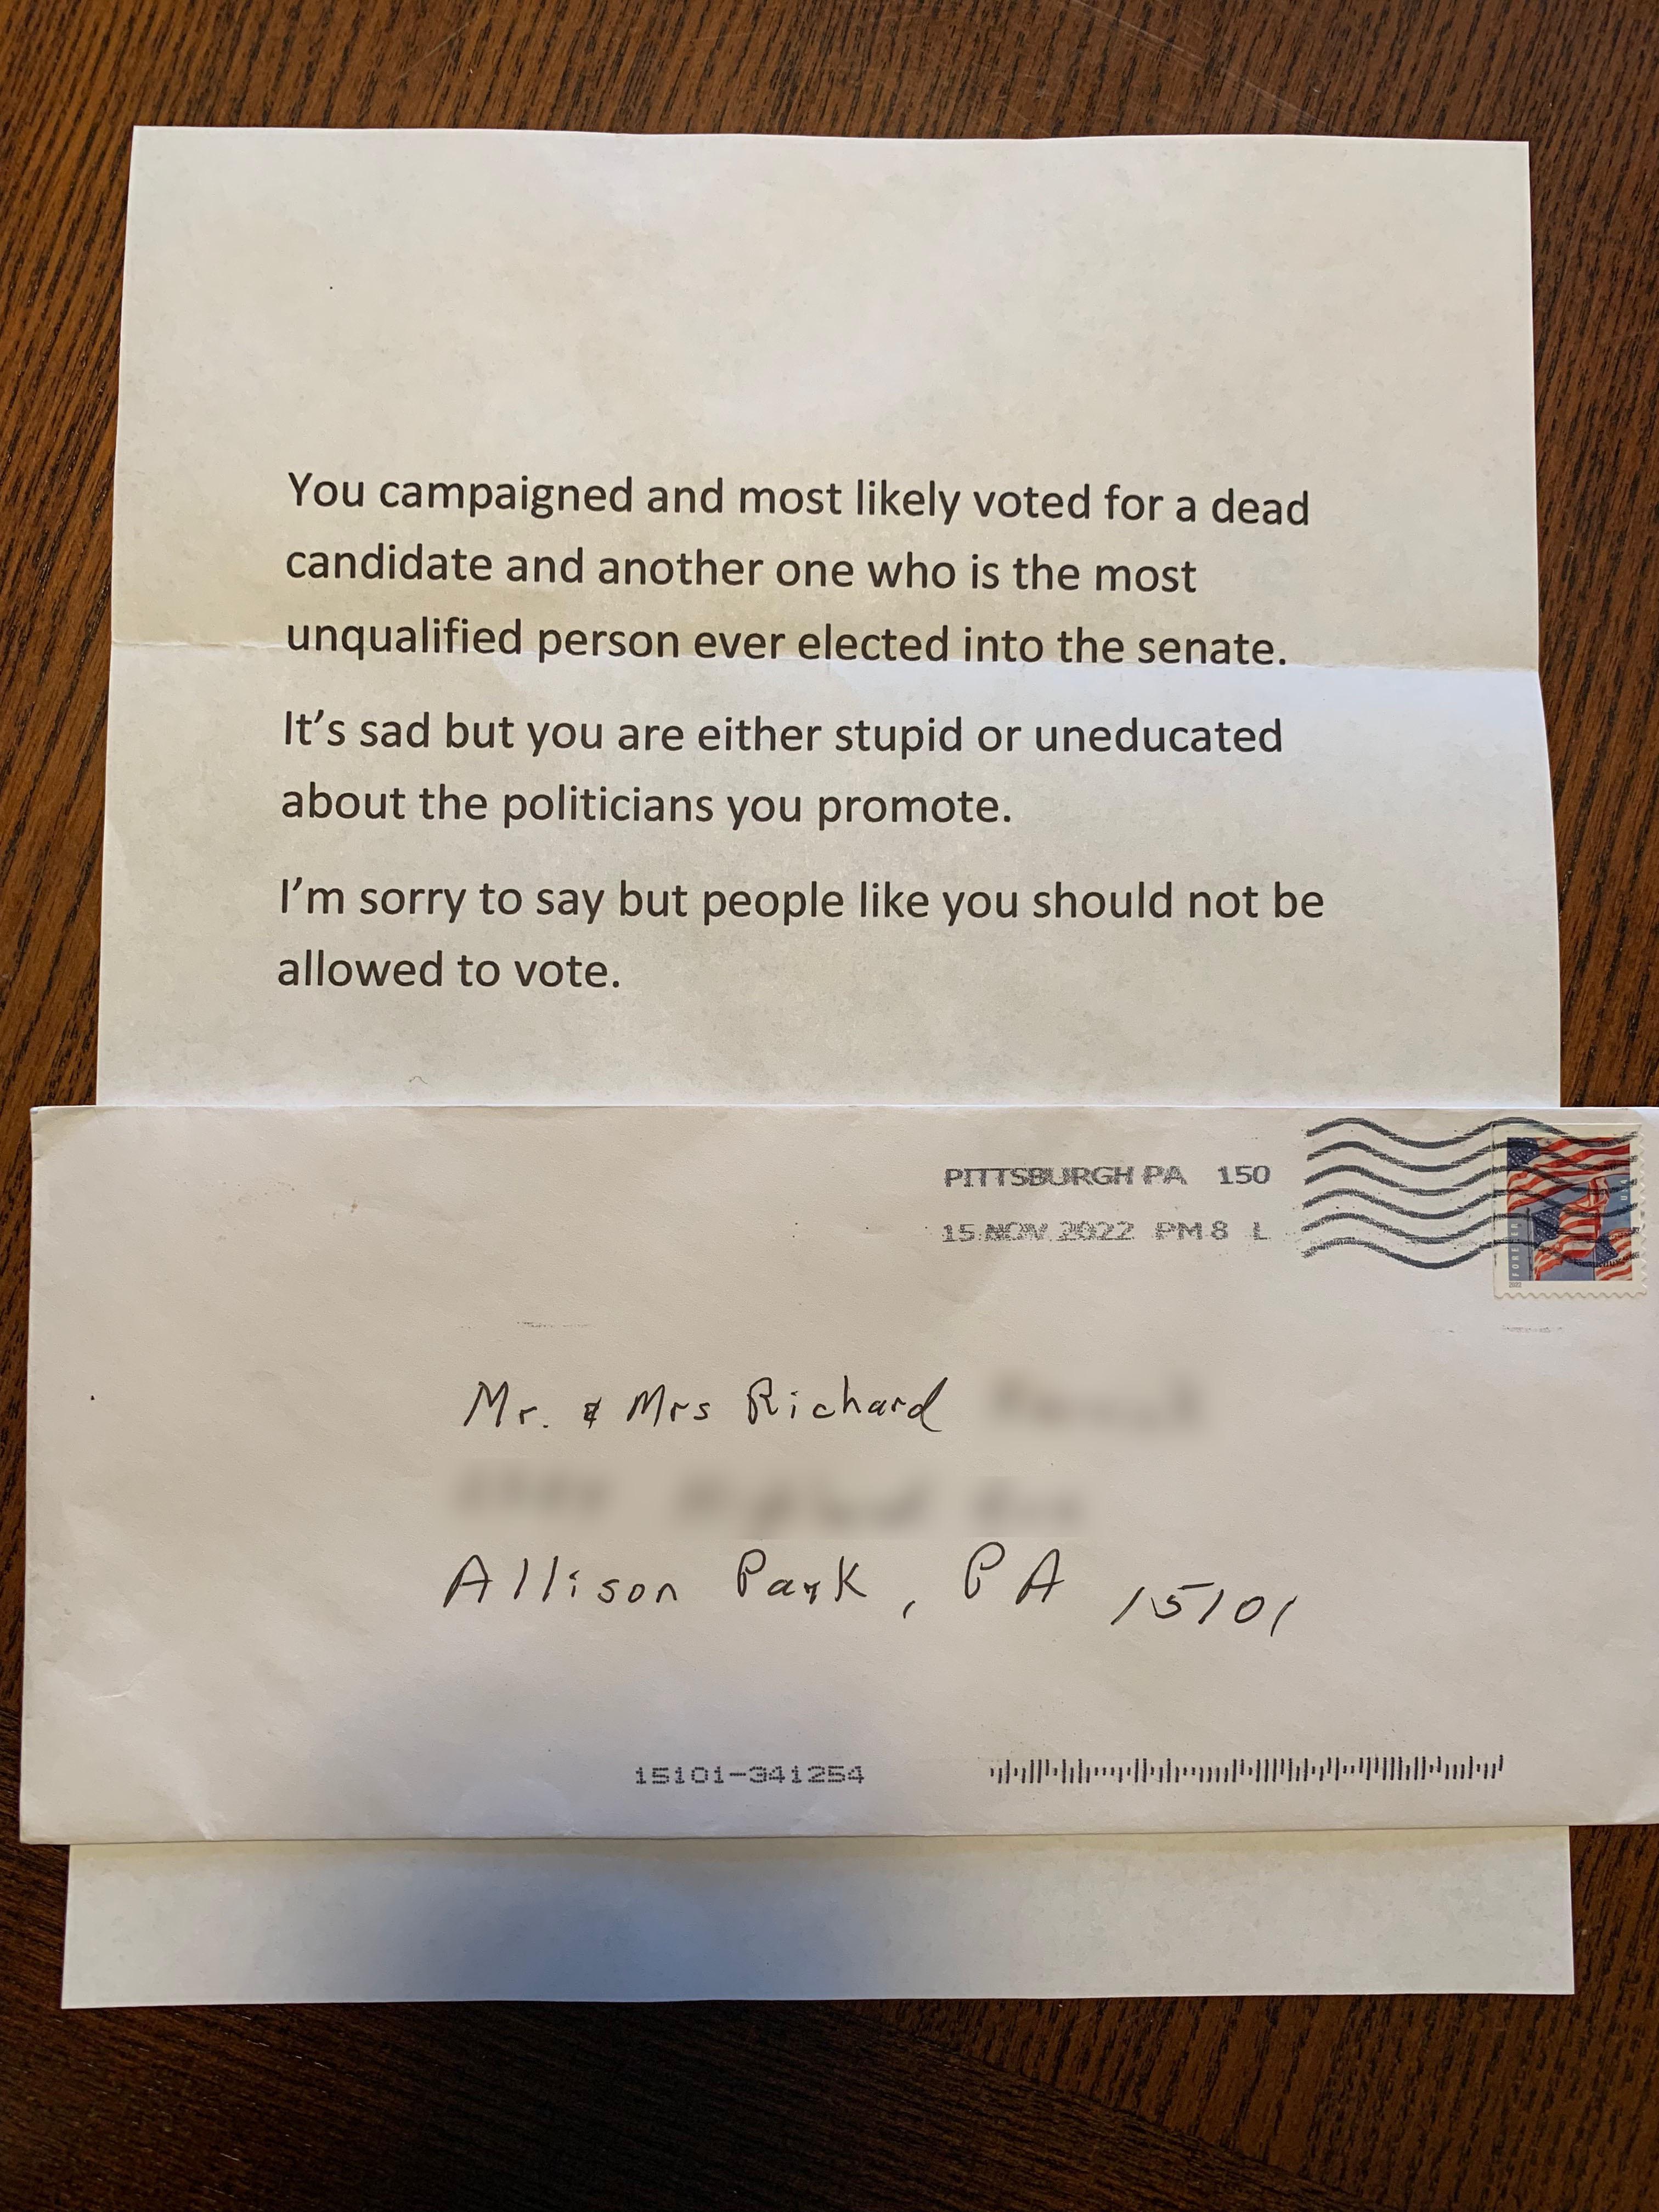 You campaigned and most likely voted for a dead
candidate and another one who is the most
unqualified person ever elected into the senate.
It's sad but you are either stupid or uneducated
about the politicians you promote.
I'm sorry to say but people like you should not be
allowed to vote.
PITTSBURGH PA 150
15 NOV 2022 PM 8 L
FOREVER
USA
2022
Mr. & Mrs Richard
Allison Park, PA 15101
15101-341254